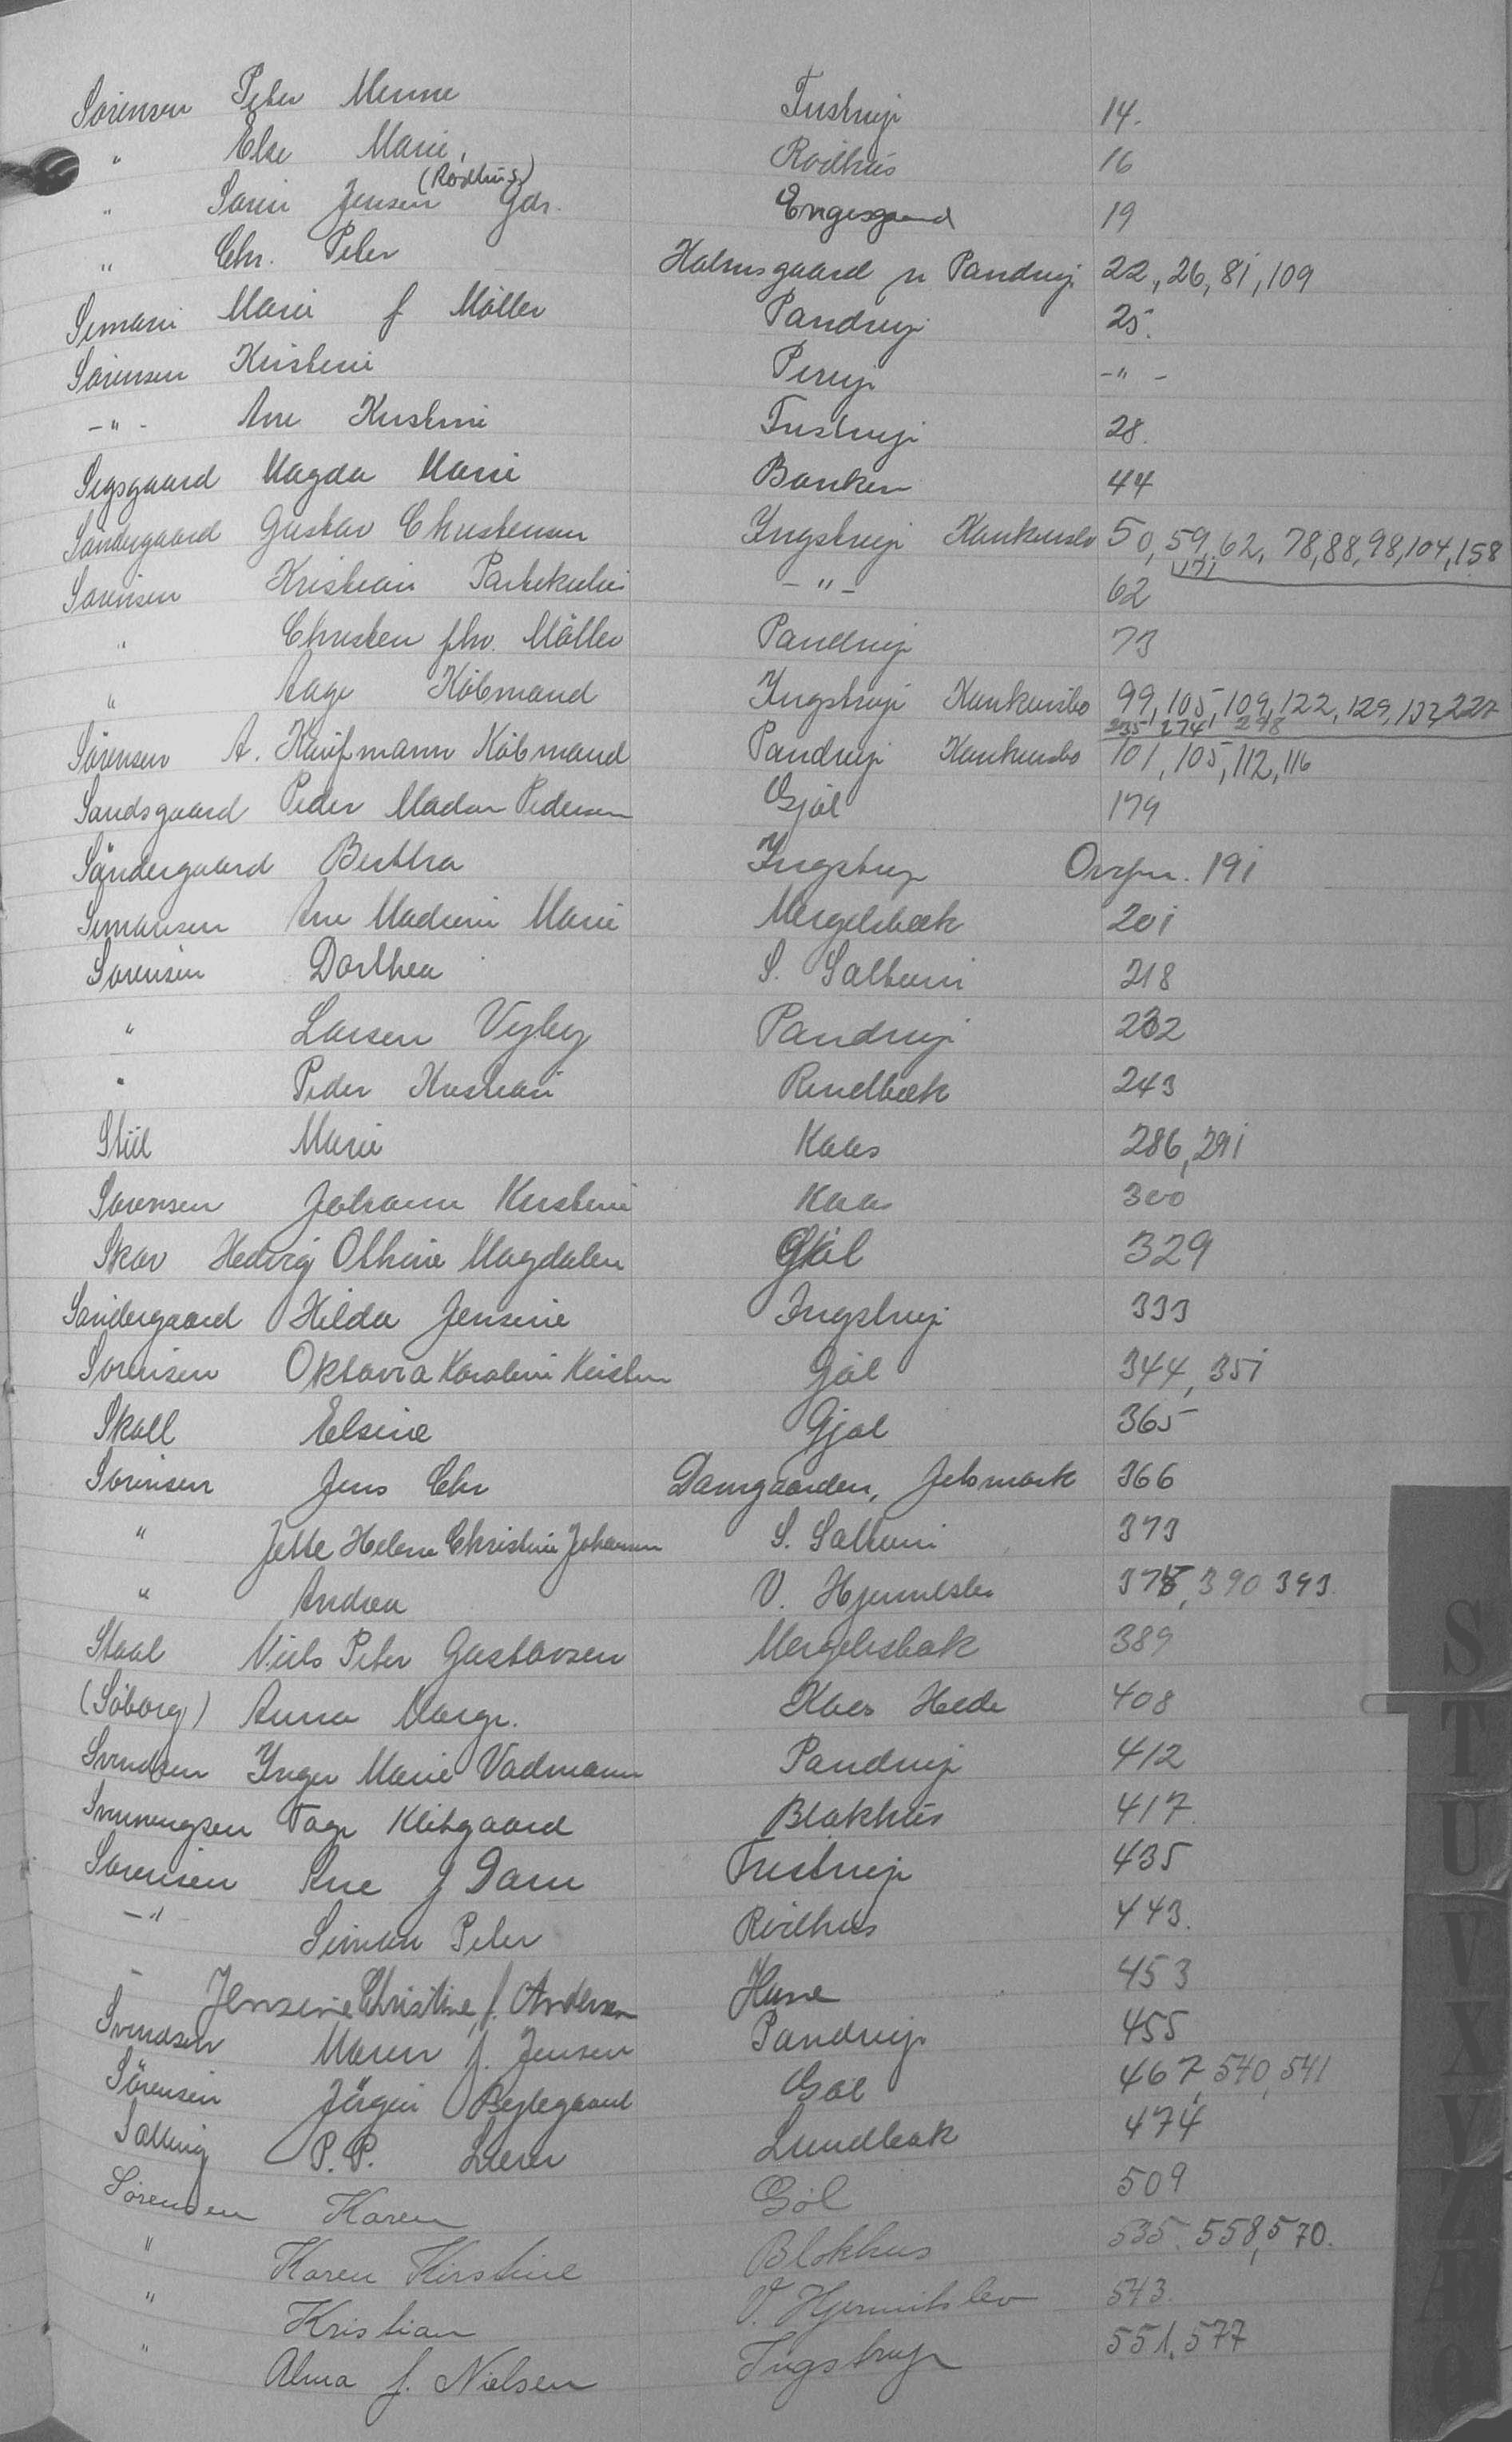 Sörensen Peter Menne Tustrup 14.
" Else Marie, Rödhus 16
" Sörin Jensen (Rödhus) Gdr. Engesgaard 19
" Chr. Peter Halmsgaard n Pandrup 22, 26, 81, 109
Simoni Marie f Möller Pandrup 25.
Sörensen Kristine Pirup -"-
-"- Ane Kirstine Tustrup 28.
Sigsgaard Magda Marie Banken 44
Söndergaard Gustav Christensen Ingstrup Konkursbo 50, 59, 62, 78, 88, 98, 104, 158
171
Sörensen Kristian Partikulier -"- 62
" Christen fhv. Möller Pandrup 73
" Aage Köbmand Ingstrup Konkursbo 99, 105, 109, 122, 129, 132, 227
235, 274, 298
Sörensen A. Kaufmann Köbmand Pandrup Konkursbo 101, 105, 112, 116
Sandsgaard Peder Madsen Pedersen Gjöl 179
Söndergaard Bertha Ingstrup Ovfn. 191
Simonsen Ane Madsine Marie Mergelsbæk 201
Sörensen Dorthea S. Saltum 218
" Larsen Vejby Pandrup 232
" Peder Kristian Rendbæk 243
Stiil Marie Kaas 286, 291
Sörensen Johanne Kirstine Kaas 300
Skov Hedvig Othine Magdalen Gjöl 329
Söndergaard Hilda Jensine Ingstrup 333
Sörensen Oktavia Karoline Kristen Göl 344, 351
Skall Elsine Gjöl 365
Sörensen Jens Chr Damgaarden, Jetsmark 366
" Jette Helene Christine Johansen S. Saltum 373
" Andrea V. Hjermitslev 378, 390 393.
Staal Niels Peter Gustavsen Mergelsbæk 389
(Söborg) Anna Margr. Kaas Hede 408
Svendsen Inger Marie Vadmann Pandrup 412
Svenningsen Tage Klitgaard Blokhus 417.
Sörensen Ane f Dam Tustrup 435
-"- Simon Peter Rödhus 443.
- Jensine Christine, f. Andersen Hune 453
Svendsen Maren f. Jensen Pandrup 455
Sörensen Jörgen Bejlegaard Göl 467, 540, 541
Salling P. P. Lundbæk 474
Sörensen Karen Göl 509
" Karen Kirstine Blokhus 535, 558, 570.
" Kristian V. Hjermitslev 543.
" Alma f. Nielsen Ingstrup 551, 577
S
T
U
V
X
Y
Z
Æ
Ø